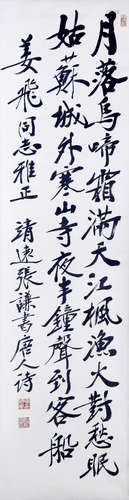 月落烏啼霜滿天江楓漁火對愁眠
姑蘇城外寒山寺夜半鐘聲到客船
姜飛同志雅正 清遠張謙書唐人詩